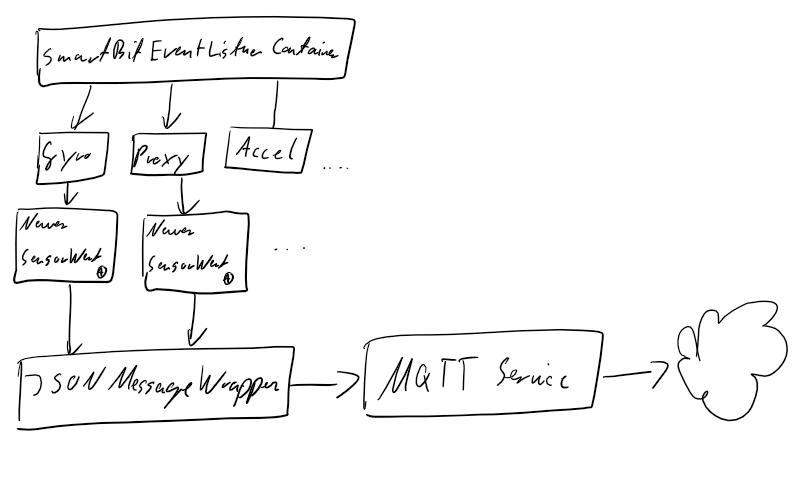 SmartBit EventListner Container
Gyro
Proxy
Accel
....
Neuer
SensorWert
Neuer
SensorWert
...
JSON MessageWrapper
MQTT Service